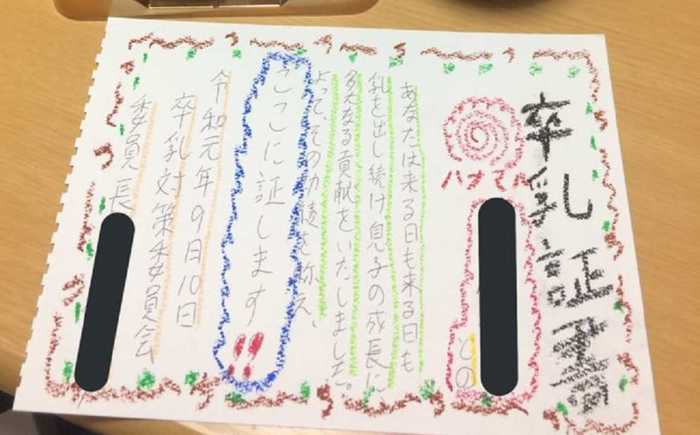 卒乳証書
ハナマル
どの
あなたは来る日も来る日も
乳を出し続け息子の成長に
多大なる貢献をいたしました。
よって、その功績を称え、
ここに証します!!
令和元年9月10日
卒乳対策委員会
委員長